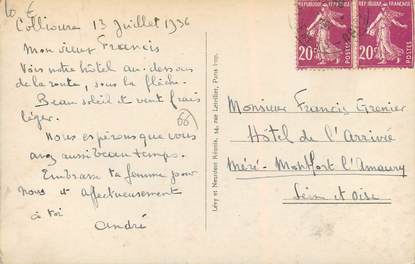 10 €
Collioure 13 Juillet 1936
Mon vieux Francis
Vois notre hôtel au-dessous
de la route, sous la flèche.
Beau soleil et vent frais
léger.
66
Nous espérons que vous
avez aussi beau temps.
Embrasse ta femme pour
nous et affectueusement
à toi
André
Lévy et Neurdein Réunis, 44, rue Letellier, Paris Imp.
RÉPUBLIQUE FRANÇAISE
20c
POSTES
RÉPUBLIQUE FRANÇAISE
20c
POSTES
Monsieur Francis Grenier
Hôtel de l'Arrivée
Méré - Montfort l'Amaury
Seine et Oise